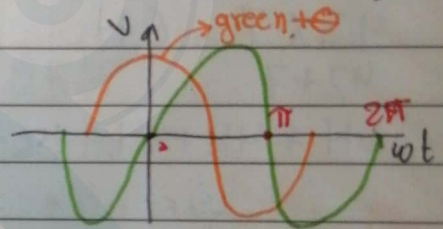 V
green + θ
π
2π
ωt